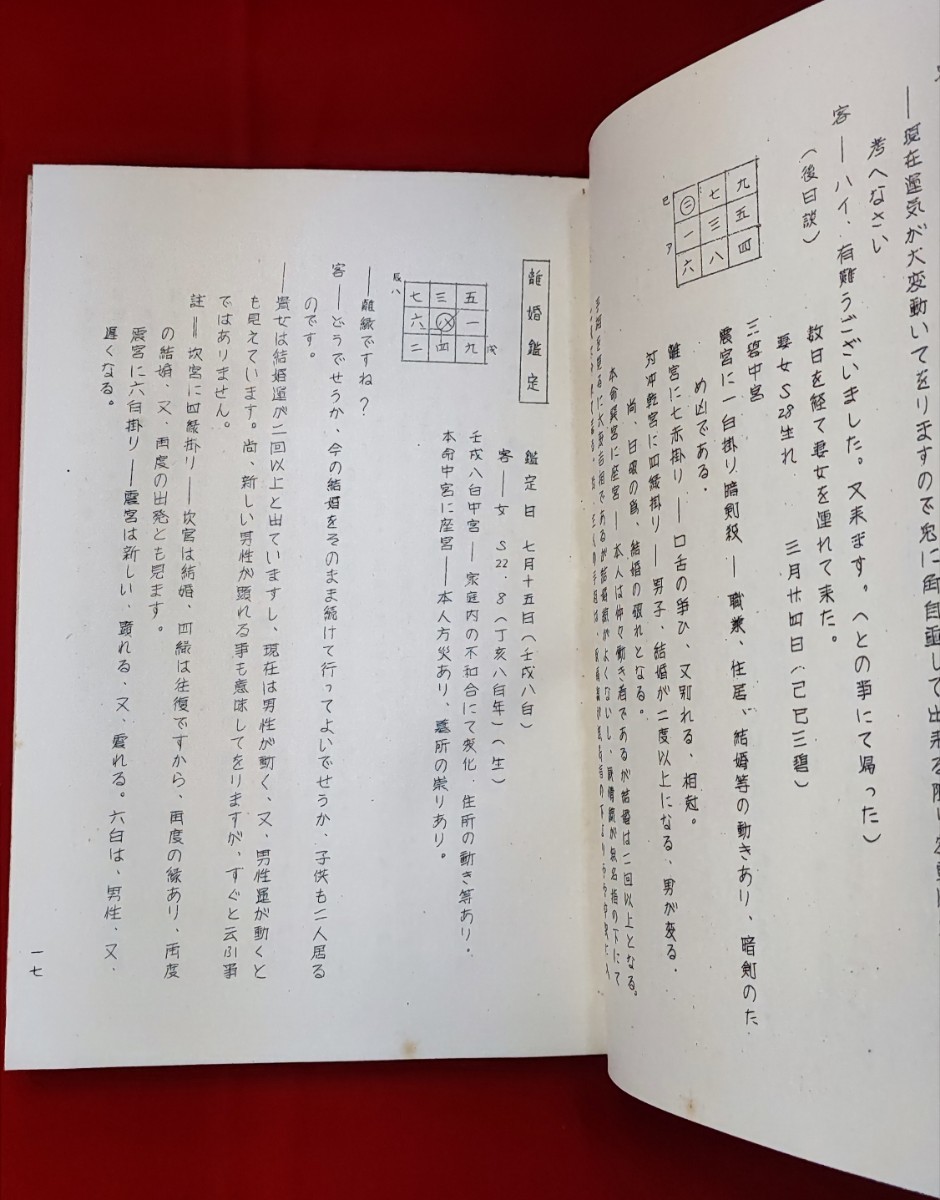 ―現在運気が大変動いてをりますので兎に角自重して出来る限り
考へなさい
客―ハイ、有難うございました。又来ます。(との事にて帰った)
(後日談)
数日を経て妻女を連れて来た。
妻女S28生れ 三月廿四日(己巳三碧)
九
七
㊁
五
三
一
四
八
六
巳
ア
三碧中宮
震宮に一白掛り、暗剣殺―職業、住居、結婚等の動きあり、暗剣のた
め凶である.
離宮に七赤掛り―口舌の爭ひ、又別れる、相剋。
対冲乾宮に四緑掛り―男子、結婚が二度以上になる、男が変る.
尚、日破の爲、結婚の破れとなる。
本命巽宮に座宮―本人は仲々動き者であるが結婚は二回以上となる。
離婚鑑定
鑑定日 七月十五日(壬戌八白)
客―女 S22.8(丁亥八白年)(生)
五
三
七
一
八
六
九
四
二
戌
ハ
壬戌八白中宮―家庭内の不和合にて変化.住所の動き等あり.
本命中宮に座宮―本人方災あり、墓所の崇りあり。
―離縁ですね?
客―どうでせうか、今の結婚をそのまま続けて行ってよいでせうか、子供も二人居る
のです。
―貴女は結婚運が二回以上と出ていますし、現在は男性が動く、又、男性運が動くと
も見えています。尚、新しい男性が顕れる事も意味してをりますが、すぐと云ふ事
ではありません。
註=坎宮に四緑掛り―坎宮は結婚、四緑は往復ですから、再度の縁あり、再度
の結婚、又、再度の出発とも見ます。
震宮に六白掛り―震宮は新しい、顕れる、又、震れる。六白は、男性、又、
遅くなる。
一七